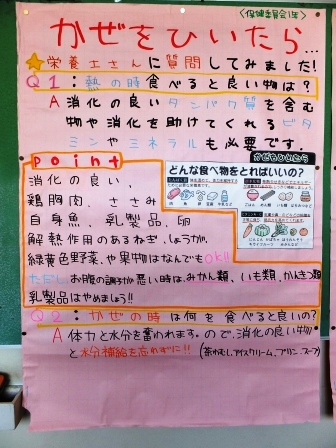 〈保健委員会1年〉
かぜをひいたら…
栄養士さんに質問してみました!
Q1:熱の時食べると良い物は?
A 消化の良いタンパク質を含む
物や消化を助けてくれるビタ
ミンやミネラルも必要です.
point
消化の良い、
鶏胸肉、ささみ
白身魚、乳製品、卵
解熱作用のあるねぎ、しょうが、
緑黄色野菜、や果物はなんでもOK!!
ただし、お腹の調子が悪い時は、みかん類、いも類、かんきつ類
乳製品はやめましょう!!
かぜをひいたら
どんな食べ物をとればいいの?
Q2:かぜの時は何を食べると良いの?
A 体力と水分を奪われます。ので、消化の良い物
と水分補給を忘れずに!! (茶わんむし,アイスクリーム,プリン,スープ)